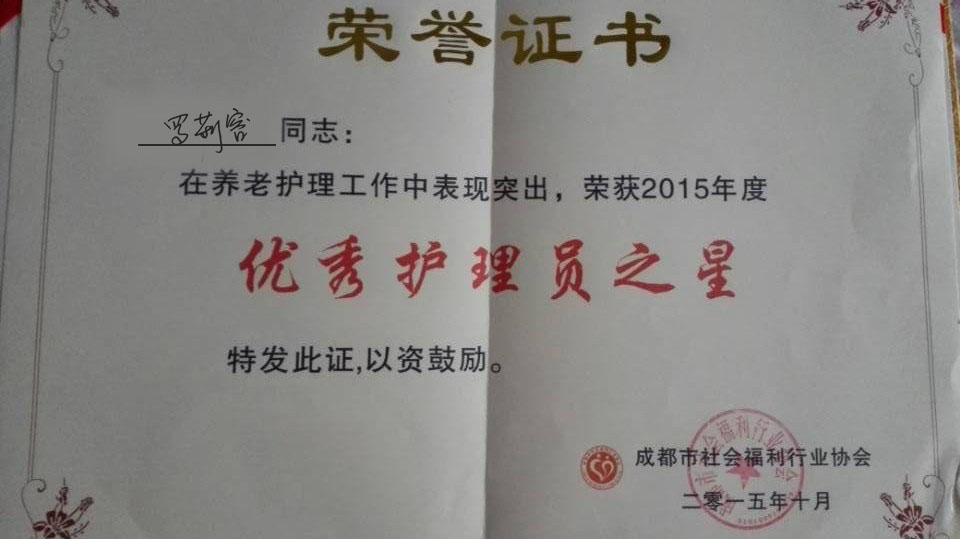 荣誉证书
罗荊容 同志：
在养老护理工作中表现突出，荣获2015年度
优秀护理员之星
特发此证,以资鼓励。
成都市社会福利行业协会
二零一五年十月